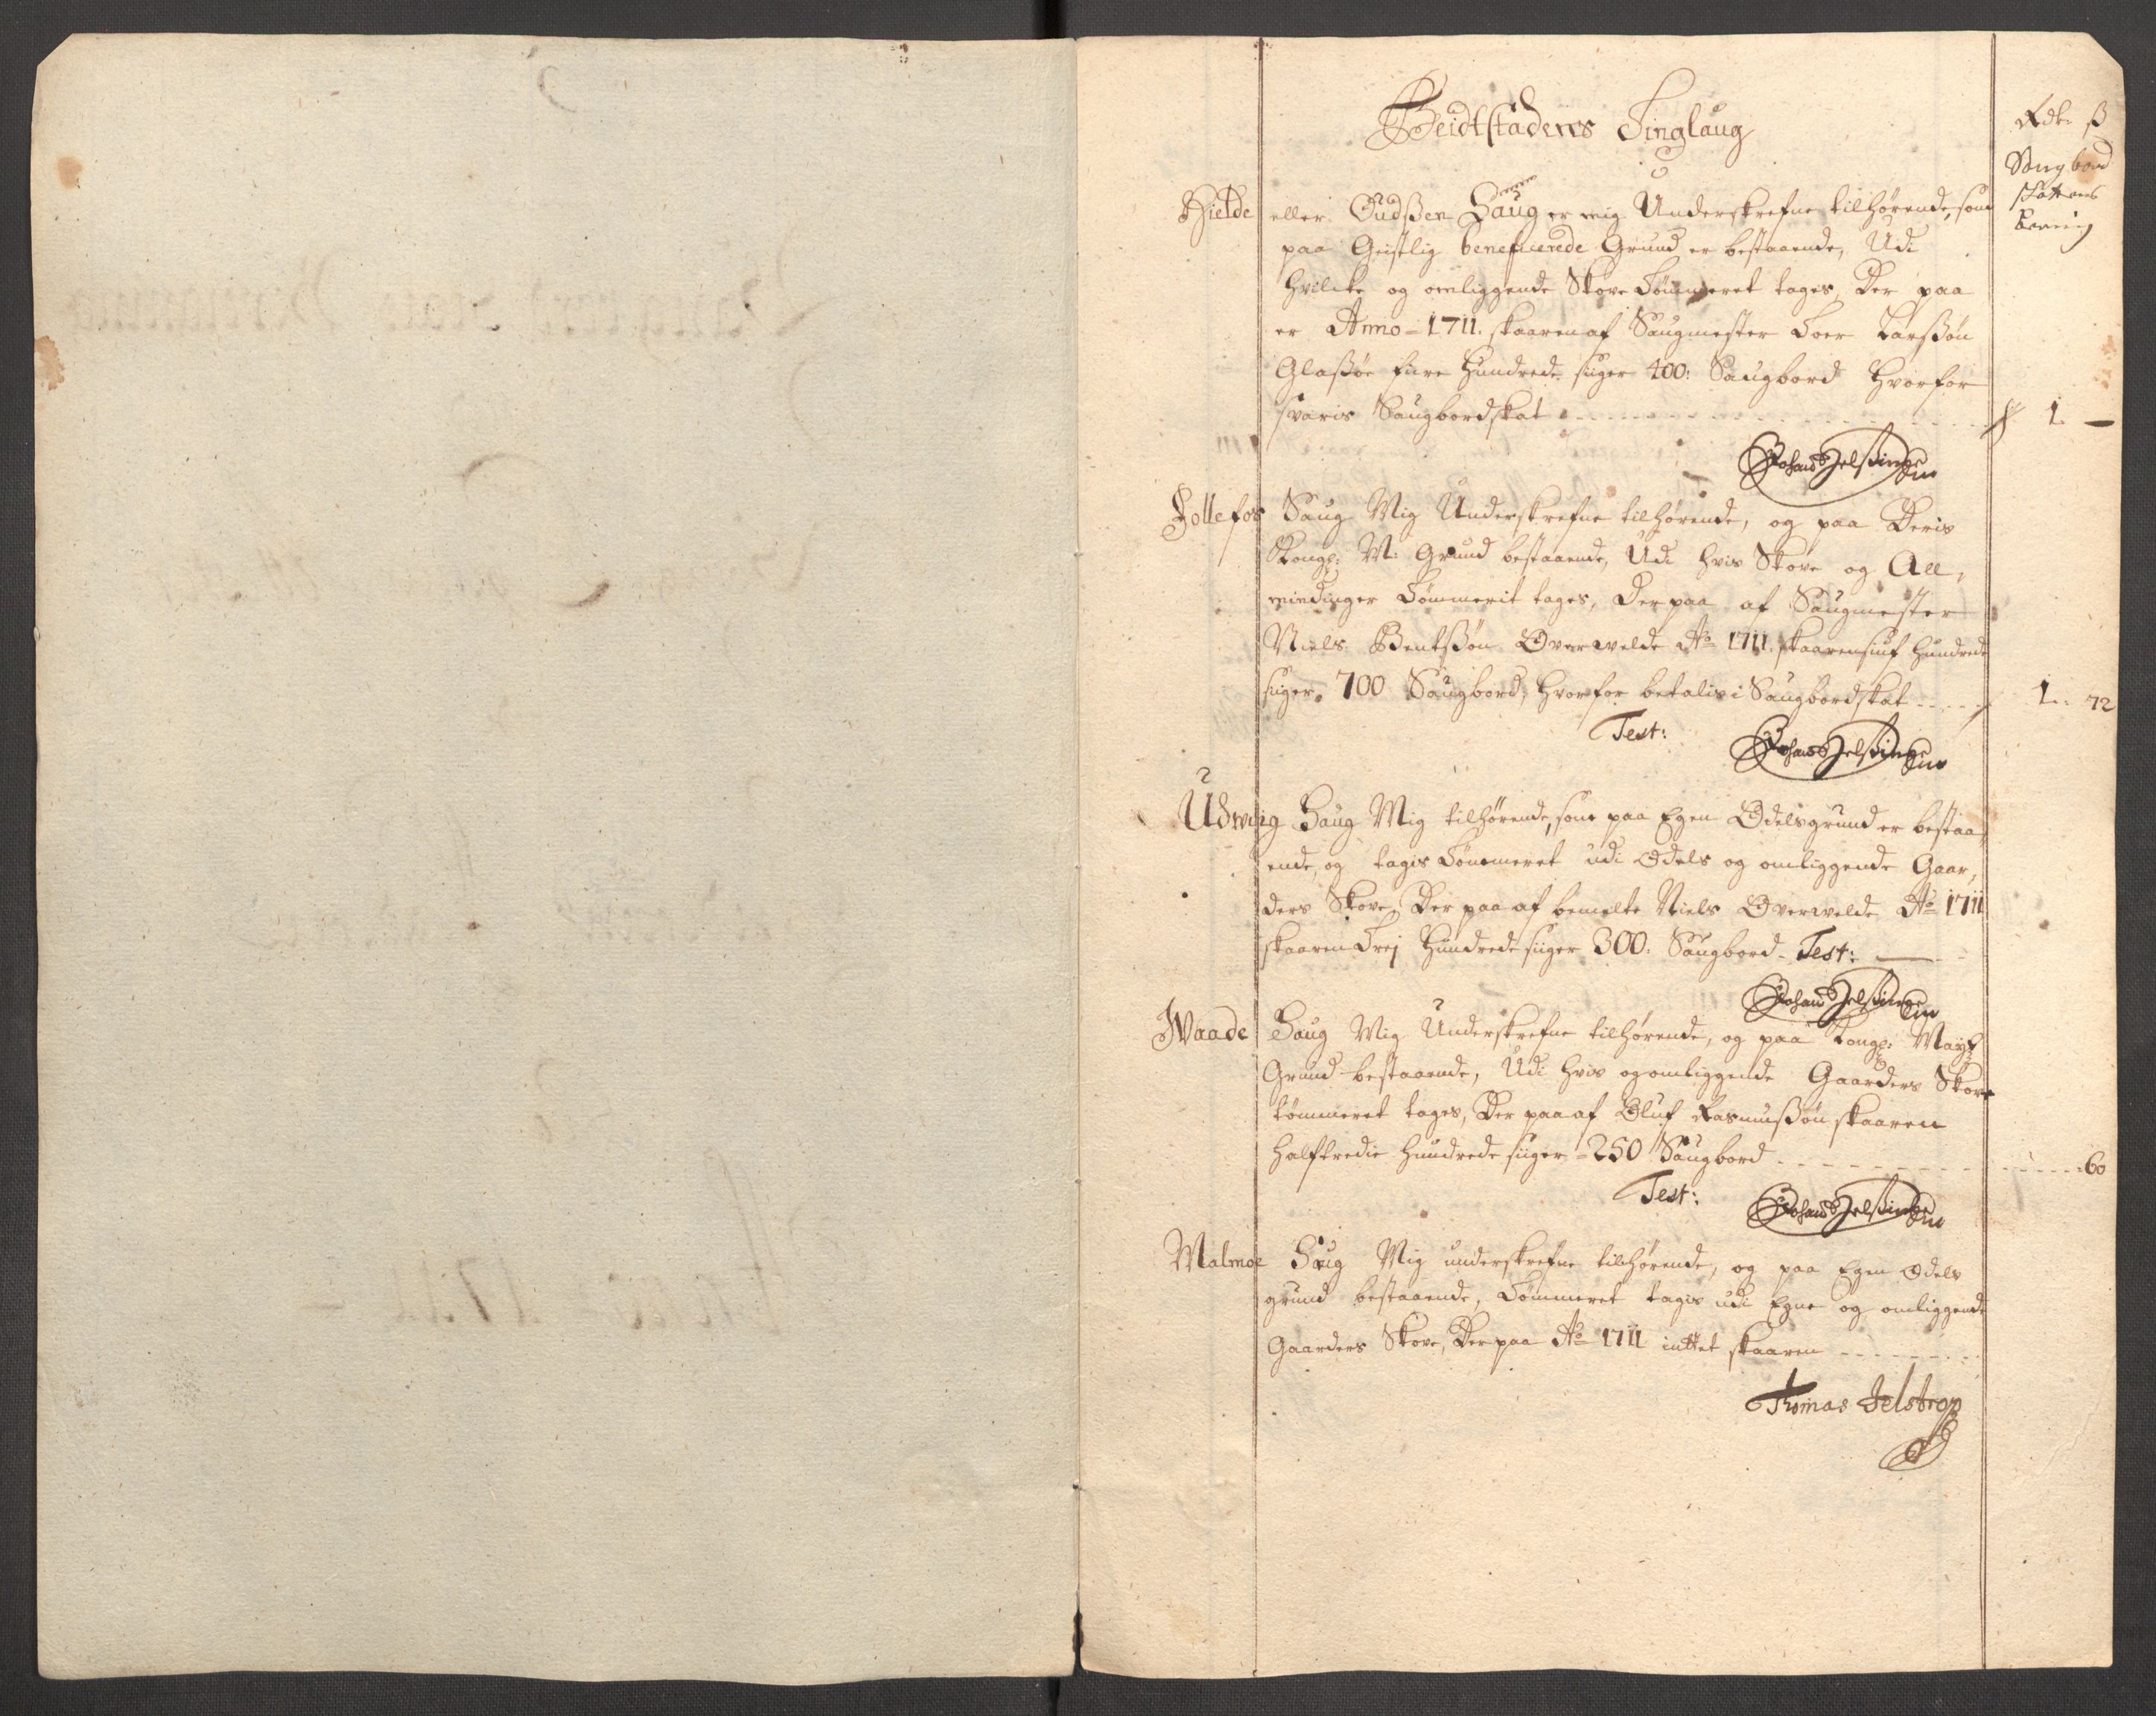 Beidtstadens Tinglaug
Rdr ß
Saugbord
skattens
Hielde eller Oudßen Saug er mig Underskrefne tilhørende, som
paa Geistlig beneficerede Grund er bestaaende, Udi
hvilcke og omliggende Skove Tømmeret tages, Der paa
er Anno 1711. skaaren af Saugmester Toer Larßøn
Glaßøe fiire Hundrede siiger 400: Saugbord Hvorfor
svaris Saugbordskat 1 —
Follefos Saug Mig Underskrefne tilhørende, og paa Deris
Kongl: M: Grund bestaaende, Udi hvis Skove og All,
mindinger Tømmerit tages, Derpaa af Saugmester
Niels Bentßøn Overwelde Ao 1711. skaaren siuf Hundrede
siiger. 700 Saugbord, hvorfor betalis i Saugbordskat 1.. 72
Test:
Udwiig Saug Mig tilhørende, som paa Egen Odelsgrund er bestaa,
ende, og tagis Tømmeret udi Odels og omliggende Gaar,
ders Skove, Der paa af bemelte Niels Overwelde Ao 1711
skaaren Trej Hundrede siiger 300: Saugbord. Test:
Waade Saug Mig Underskrefne tilhørende, og paa Kongl: Mayt:
Grund bestaaende, Udi hvis og omliggende Gaarders Skove
tømmeret tages, Der paa af Oluf Rasmusßøn skaaren
halftredie Hundrede siiger 250 Saugbord 60
Test:
Malmoe Saug Mig underskrefne tilhørende, og paa Egen Odels
grund bestaaende, Tømmeret tagis udi Egne og omliggende
Gaarders Skove, Derpaa Ao 1711 inttet skaaren
Thomas Jelstrop